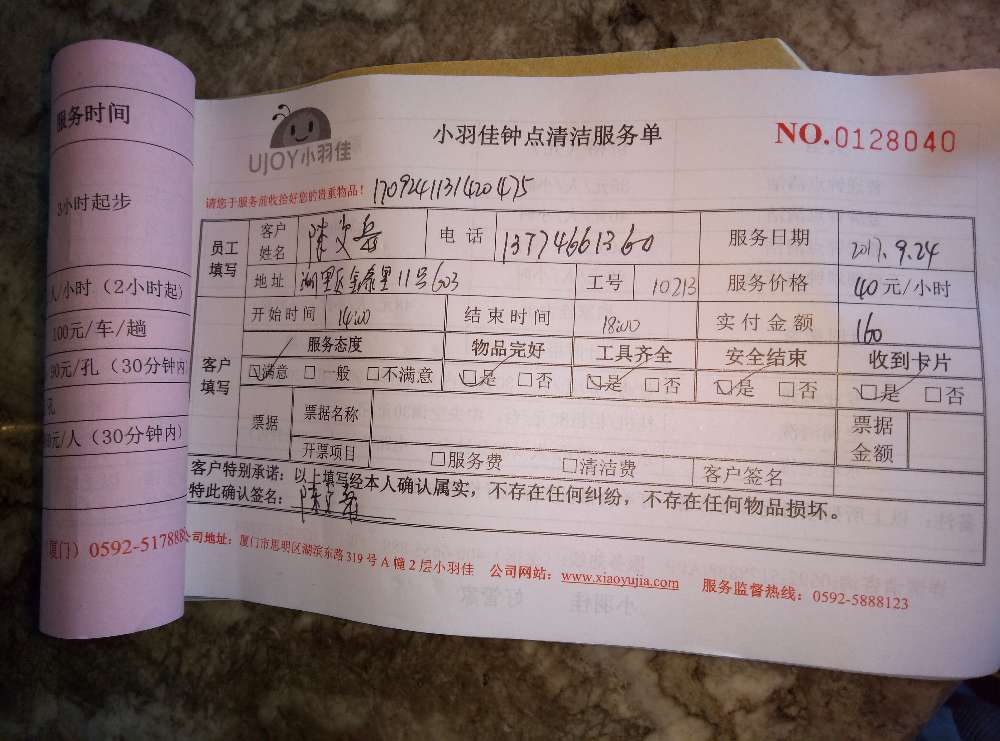 服务时间
3小时起步
人/小时（2小时起）
100元/车/趟
90元/孔（30分钟内
孔
元/人（30分钟内）
厦门）0592-517888
UJOY小羽佳
小羽佳钟点清洁服务单
NO.0128040
请您于服务前收拾好您的贵重物品！ 1709241131420475
员工填写 客户姓名 陈 电话 13774661360 服务日期 2017.9.24
地址 湖里区 里11号603 工号 10213 服务价格 40元/小时
客户填写 开始时间 14:00 结束时间 18:00 实付金额 160
服务态度 物品完好 工具齐全 安全结束 收到卡片
☑满意 □一般 □不满意 ☑是 □否 ☑是 □否 ☑是 □否 ☑是 □否
票据 票据名称 票据金额
开票项目 □服务费 □清洁费 客户签名
客户特别承诺：以上填写经本人确认属实，不存在任何纠纷，不存在任何物品损坏。
特此确认签名： 陈
公司地址：厦门市思明区湖滨东路319号A幢2层小羽佳 公司网站：www.xiaoyujia.com 服务监督热线：0592-5888123